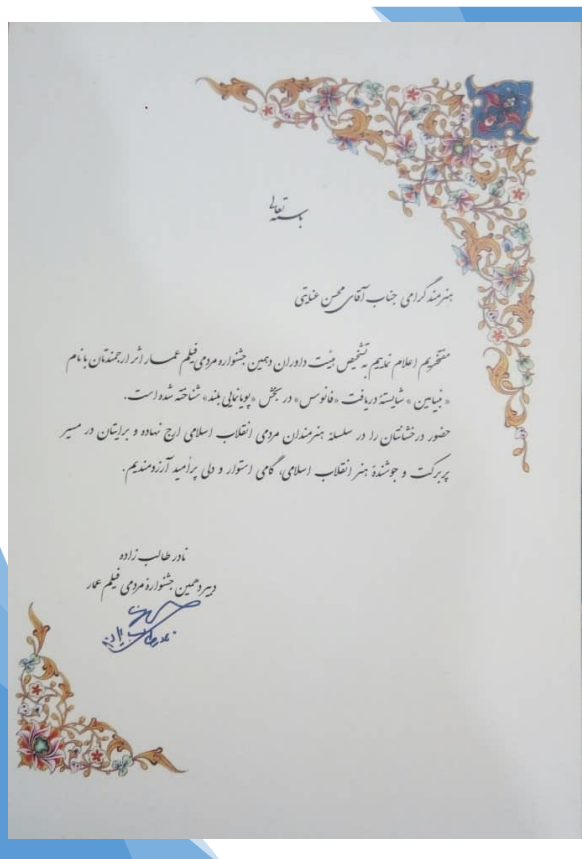 باسمه تعالی
هنرمند گرامی جناب آقای محسن عنایتی
مفتخریم اعلام نماییم به تشخیص هیئت داوران دهمین جشنواره مردمی فیلم عمار اثر ارجمندتان با نام
«بنیامین» شایسته دریافت «فانوس» در بخش «پویانمایی بلند» شناخته شده است.
حضور درخشانتان را در سلسله هنرمندان مردمی انقلاب اسلامی ارج نهاده و برایتان در مسیر
پربرکت و جوشندهٔ هنر انقلاب اسلامی، گامی استوار و دلی پرامید آرزومندیم.
نادر طالب زاده
دبیر دهمین جشنوارهٔ مردمی فیلم عمار